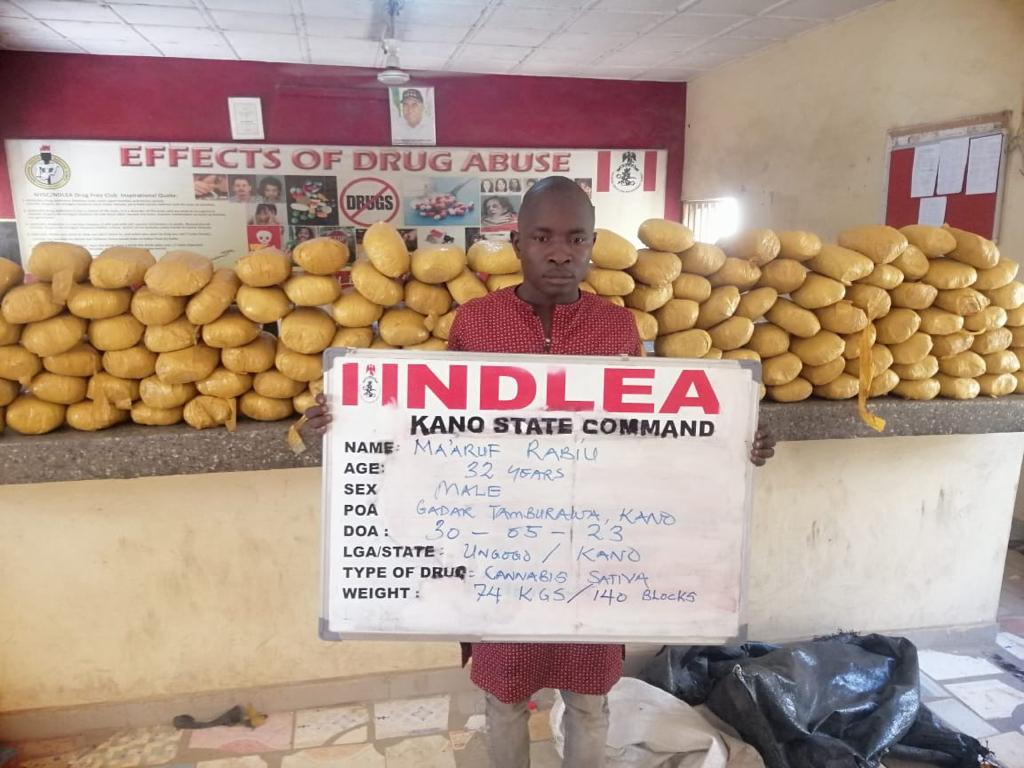 EFFECTS OF DRUG ABUSE
NYSC/NDLEA Drug Free Club Inspirational Quote:
DRUGS
NDLEA
KANO STATE COMMAND
NAME: MA'ARUF RABIU
AGE: 32 YEARS
SEX MALE
POA GADAR TAMBURAWA, KANO
DOA: 30-05-23
LGA/STATE: UNGOGO / KANO
TYPE OF DRUG: CANNABIS SATIVA
WEIGHT: 74 KGS/140 BLOCKS